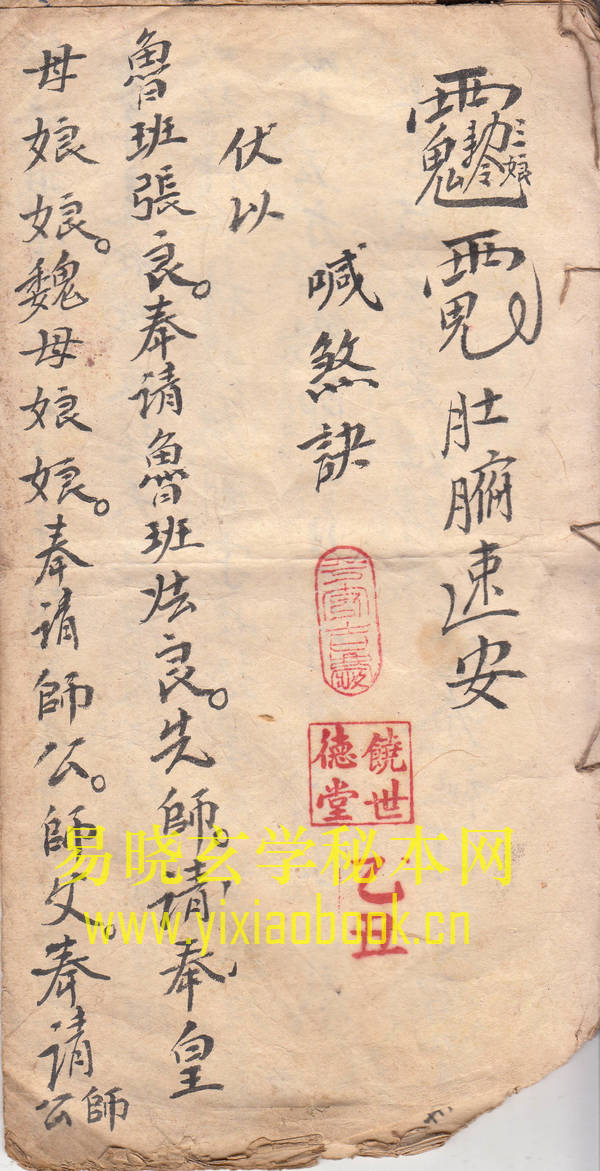 肚腑速安
喊煞訣
伏以
魯班張良。奉请魯班張良。先師。请奉皇
母娘娘。魏母娘娘。奉请師公。師父。奉请師公
饒世德堂
己丑
易晓玄学秘本网
www.yixiaobook.cn